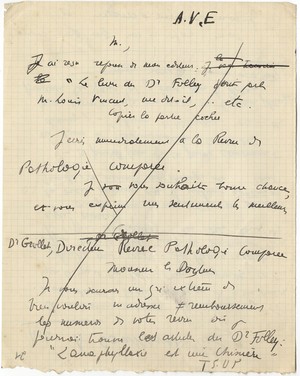 A.V.E
M.,
J'ai reçu réponse de mon éditeur.
"Le livre du Dr Folley dont parle
M. Louis Vincent, me dit-il, ... etc.
Copier la partie cochée
J'écris immédiatement à la Revue de
Pathologie comparée.
Je vous souhaite bonne chance,
et vous exprime mes sentiments les meilleurs
Dr Grollet, Directeur Revue Pathologie Comparée
Monsieur le Docteur
Je vous saurais un gré extrême de
bien vouloir m'adresser # remboursement
les numéros de votre revue où je
pourrais trouver les articles du Dr Folley:
"L'anaphylaxie est une chimère"
T.S.V.P